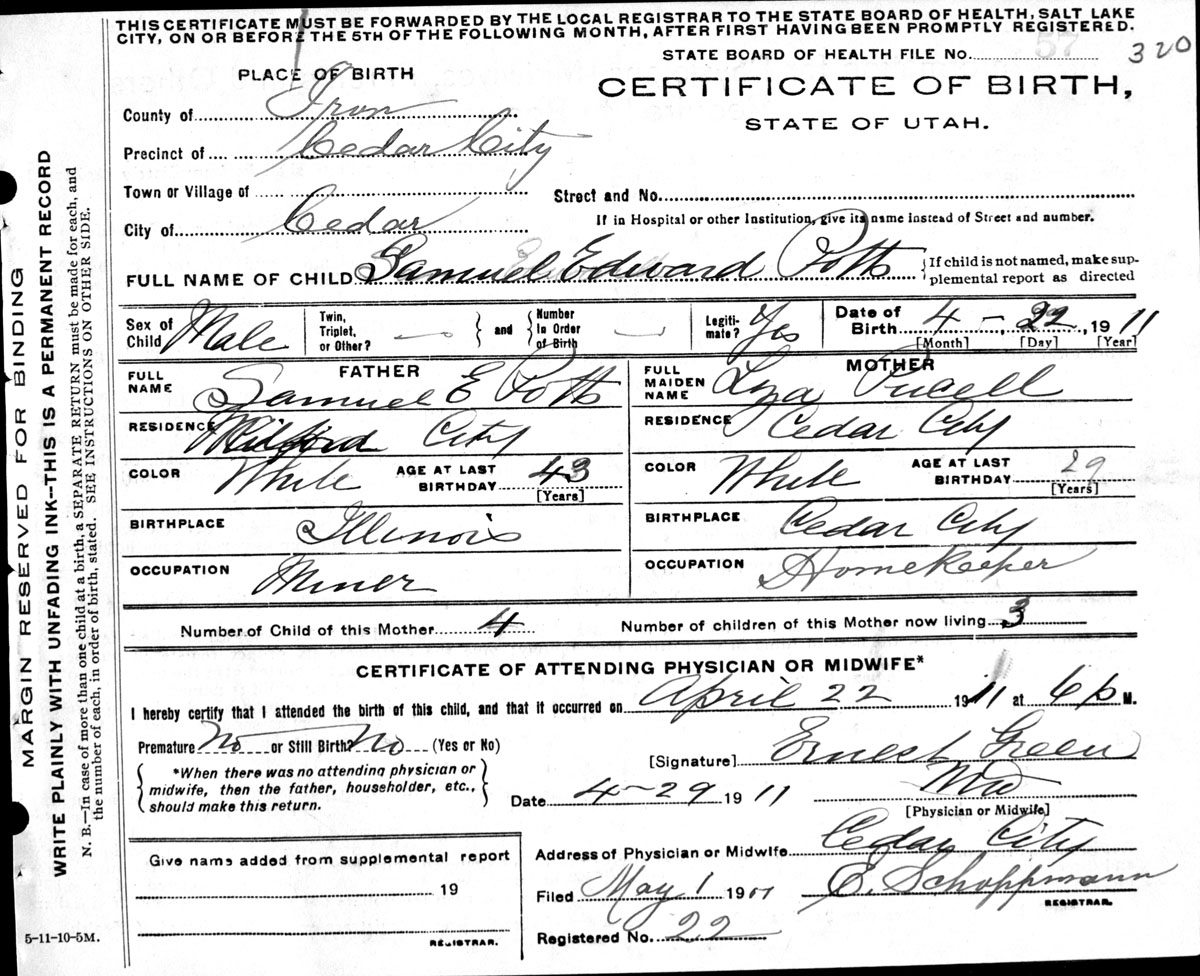 THIS CERTIFICATE MUST BE FORWARDED BY THE LOCAL REGISTRAR TO THE STATE BOARD OF HEALTH, SALT LAKE
CITY, ON OR BEFORE THE 5TH OF THE FOLLOWING MONTH, AFTER FIRST HAVING BEEN PROMPTLY REGISTERED.
STATE BOARD OF HEALTH FILE No. 57 320
PLACE OF BIRTH
CERTIFICATE OF BIRTH,
STATE OF UTAH.
County of Iron
Precinct of Cedar City
Town or Village of
Street and No.
City of Cedar
If in Hospital or other Institution, give its name instead of Street and number.
FULL NAME OF CHILD Samuel Edward Potts
If child is not named, make sup-
plemental report as directed
Sex of Child Male
Twin, Triplet, or Other? —
and
Number In Order of Birth —
Legiti-mate? Yes
Date of Birth 4 - 22, 1911
[Month] [Day] [Year]
FATHER
FULL NAME Samuel E Potts
RESIDENCE City
COLOR White
AGE AT LAST BIRTHDAY 43 [Years]
BIRTHPLACE Illinois
OCCUPATION Miner
MOTHER
FULL MAIDEN NAME
RESIDENCE Cedar City
COLOR White
AGE AT LAST BIRTHDAY 29 [Years]
BIRTHPLACE Cedar City
OCCUPATION Homekeeper
Number of Child of this Mother 4
Number of children of this Mother now living 3
CERTIFICATE OF ATTENDING PHYSICIAN OR MIDWIFE*
I hereby certify that I attended the birth of this child, and that it occurred on April 22 1911 at 6 p M.
Premature No or Still Birth? No (Yes or No)
*When there was no attending physician or
midwife, then the father, householder, etc.,
should make this return.
[Signature] Ernest Green
Date 4-29 1911
MD
[Physician or Midwife]
Address of Physician or Midwife Cedar City
Filed May 1 1911
E. Schoppmann
REGISTRAR.
Registered No. 22
Give name added from supplemental report
19
REGISTRAR.
5-11-10-5M.
MARGIN RESERVED FOR BINDING
WRITE PLAINLY WITH UNFADING INK--THIS IS A PERMANENT RECORD
N. B.—In case of more than one child at a birth, a SEPARATE RETURN must be made for each, and
the number of each, in order of birth, stated. SEE INSTRUCTIONS ON OTHER SIDE.